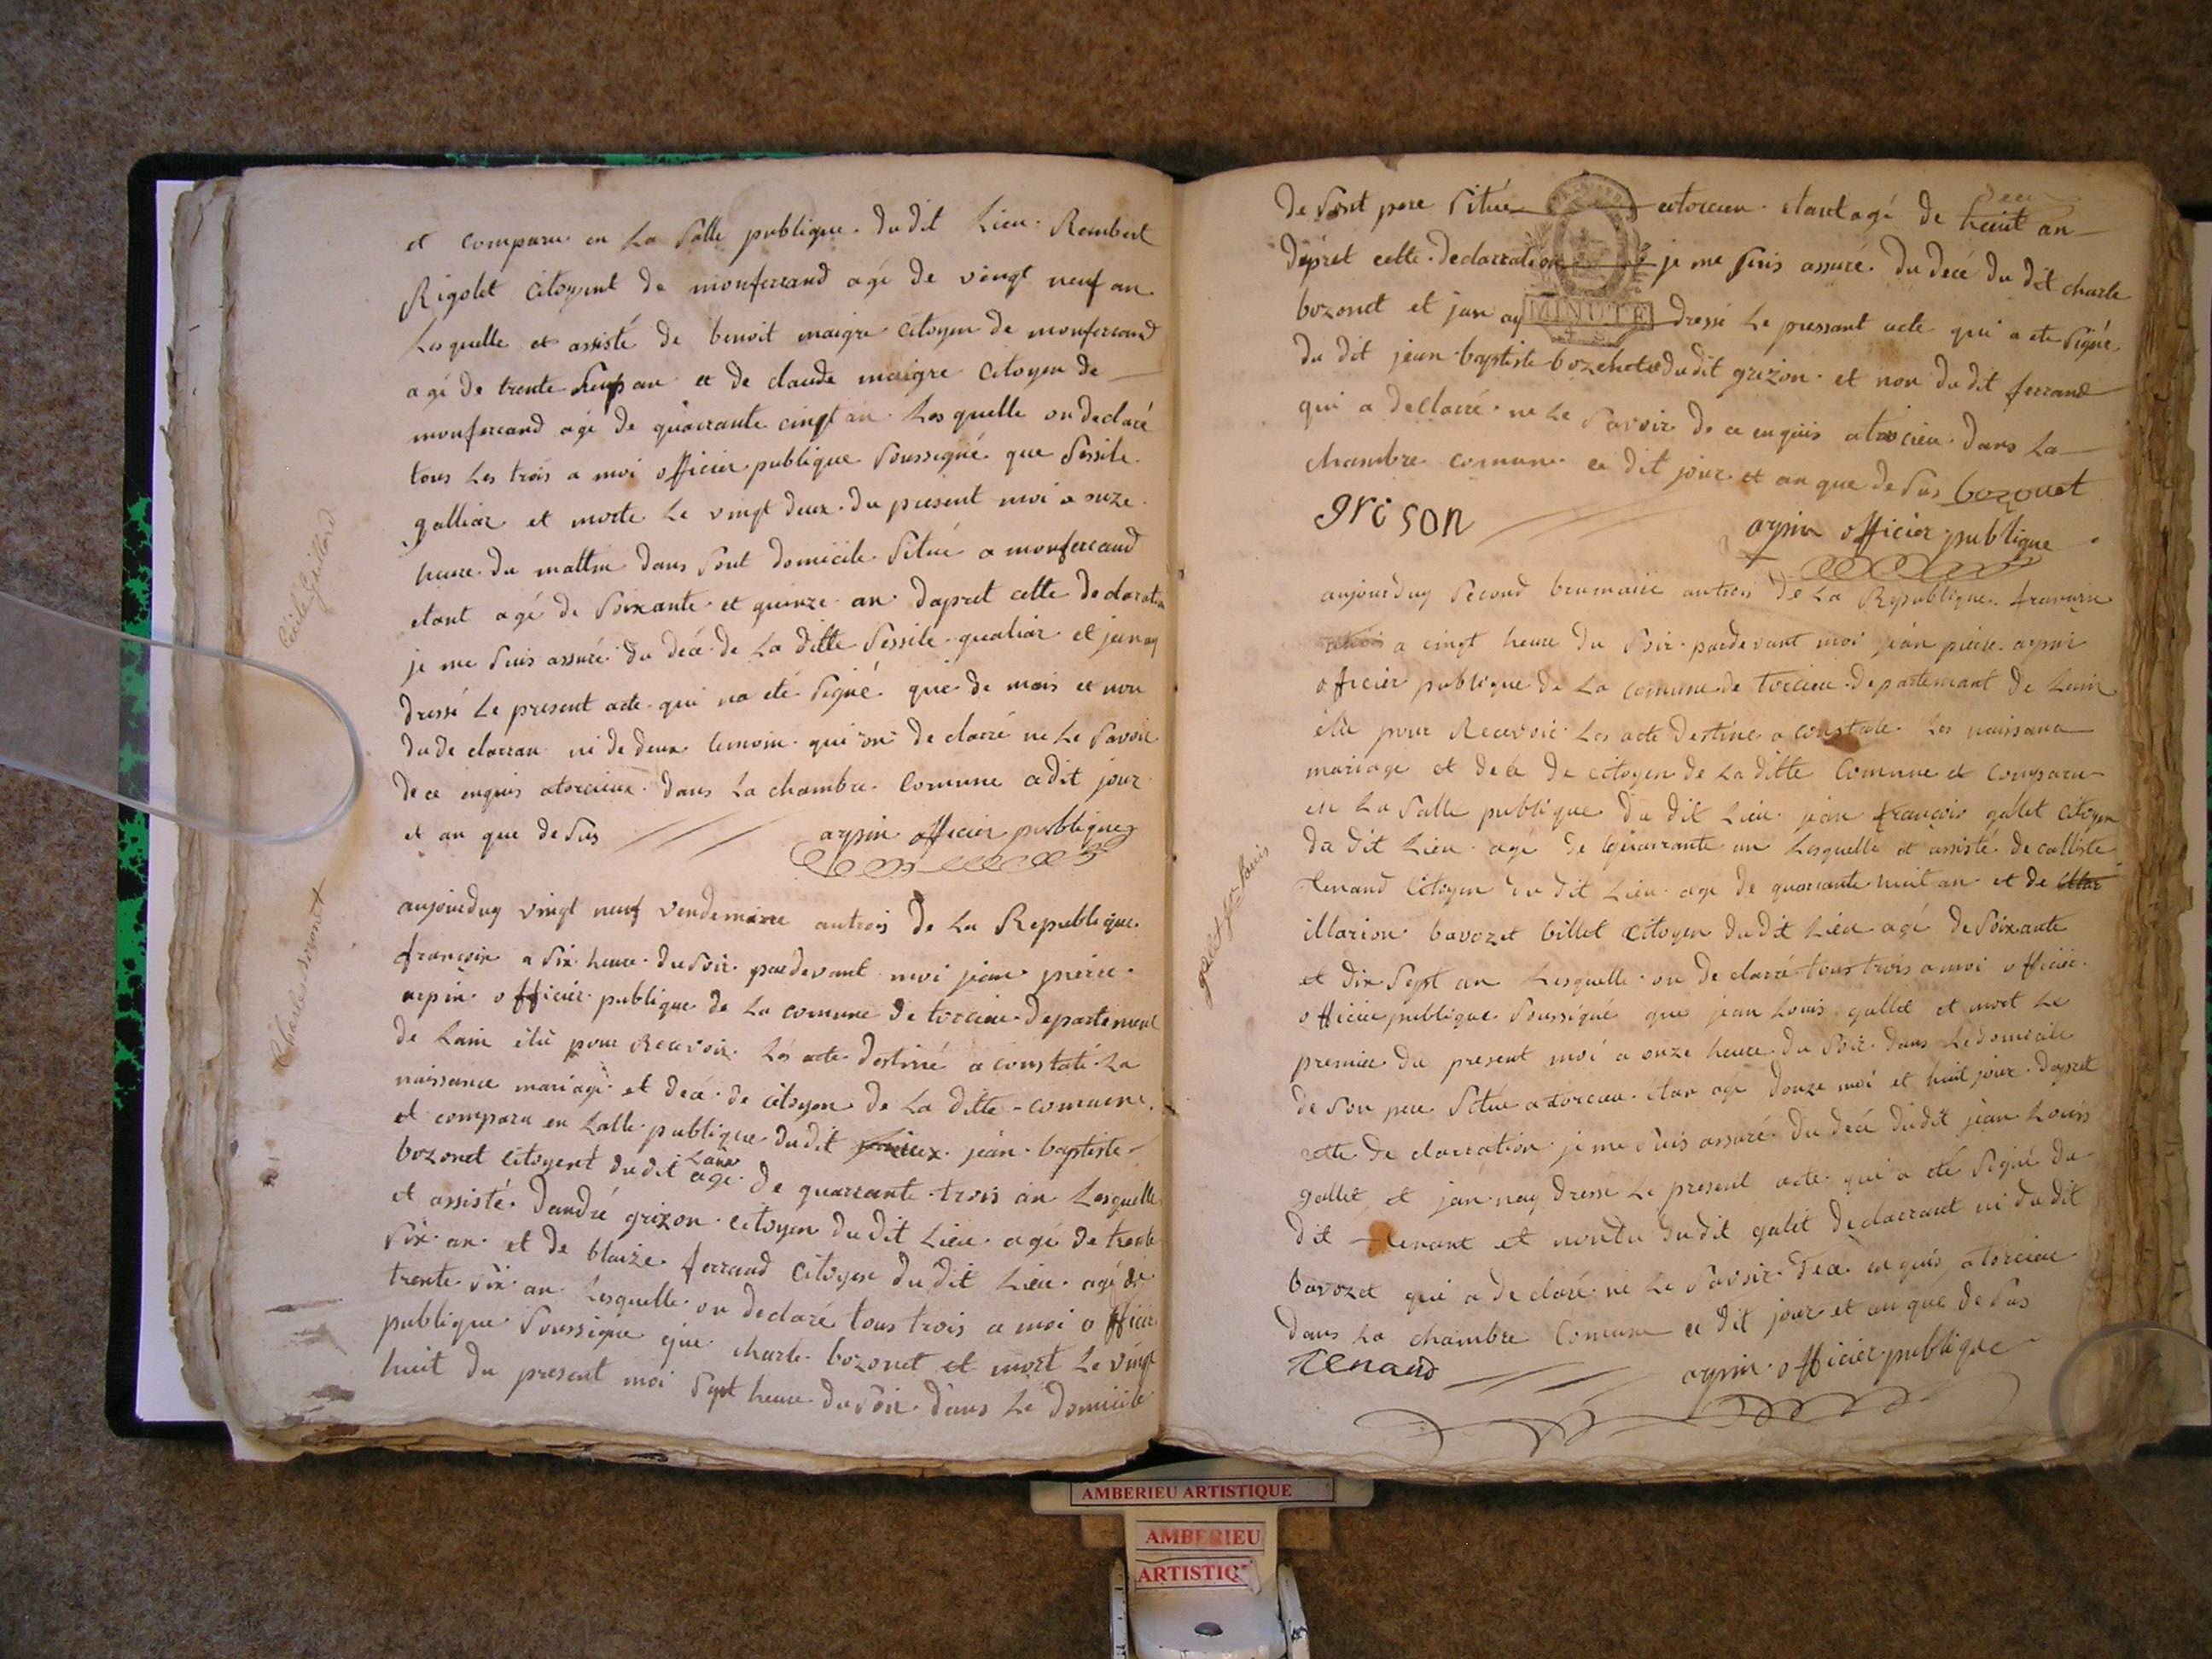 et comparu en La Salle publique du dit Lieu Rembert
Rigolet Citoyent de monferrand agé de vingt neuf an
Lesquelle et assisté de benoit maigre Citoyen de monferrand
agé de trente an et de claude maigre Citoyen de
monferrand agé de quarrante cinqt an Lesquelle on declaré
tous Les trois a moi officier publique Soussigné que Sessile
galliar et morte Le vingt deux du present moi a onze
heure du mattin dans Sont domicile Situé a monferrand
etant agé de Soixante et quinze an dapret cette declaration
je me Suis assuré du décé de La ditte Sessile gualiar et jan ay
dressé Le present acte qui na eté Signé que de mois et non
du declarran ni de deux temoin qui on declarré ne Le Savoir
de ce enquis atorcieux dans La chambre Comune cedit jour
et an que de Sus arpin officier publique
Cécile Gaillard
aujourduy vingt neuf vendemiaire antrois de La Republique
françoise a Six heure du Soir pardevant moi jean pierre
arpin officier publique de La comune de torcieu departement
de Lain élü pour Recevoir Les acte destiné a constaté La
naissance mariage et décé de citoyen de La ditte comune
et comparu en Salle publique du dit jean baptiste
bozonet citoyent dudit Lieu agé de quarrante trois an Lesquelle
et assisté dandré grizon citoyen du dit Lieu agé de trente
Six an et de blaize ferrand Citoyen du dit Lieu agé de
trente Six an Lesquelle on declaré tous trois a moi officier
publique Soussigné que charle bozonet et mort Le vingt
huit du present moi Sept heure du Soir dans Le domicile
Charles bozonet
de Sont pere Situé atorcieu etant agé de huit an
dapret cette declarration je me Suis assuré du decé du dit charle
bozonet et jan ay dressé Le pressant acte qui a eté Signé
MINUTE
du dit jean baptiste bozonet et dudit grizon et non du dit ferrand
qui a declarré ne Le Savoir de ce enquis atorcieu dans La
chambre comune ce dit jour et an que de Sus bozonet
grison arpin officier publique
aujourduy Second brumaire antrois de La Republique
a cinqt heure du Soir pardevant moi jean pierre arpin
officier publique de La comune de torcieu departemant de Lain
élü pour Recevoir Les acte destiné a constate Les naissance
mariage et décé de citoyen de La ditte Comune et Comparu
en La Salle publique du dit Lieu jean françois galet citoyen
du dit Lieu agé de quarrante an Lesquelle et assisté de calliste
tenand Citoyen du dit Lieu age de quarrante huit an et de
illarion bavozet billet citoyen du dit Lieu agé de Soixante
et dix Sept an Lesquelle on declarré tous trois a moi officier
officier publique Soussigné que jean Louis gallet et mort Le
premier du present moi a onze heure du Soir dans Le domicile
de Son pere Situé a torcieu étan age douze moi et huit jour dapret
cette declarration je me Suis assuré du décé dudit jean Louis
gallet et jan nay dressé Le present acte qui a eté Signé du
dit tenant et non du dudit galet declarrant ni du dit
bavozet qui a declaré ne Le Savoir de ce enquis atorcieu
dans La chambre Comune ce dit jour et an que de Sus
tenand arpin officier publique
galet jean Louis
AMBERIEU ARTISTIQUE
AMBERIEU
ARTISTIQ